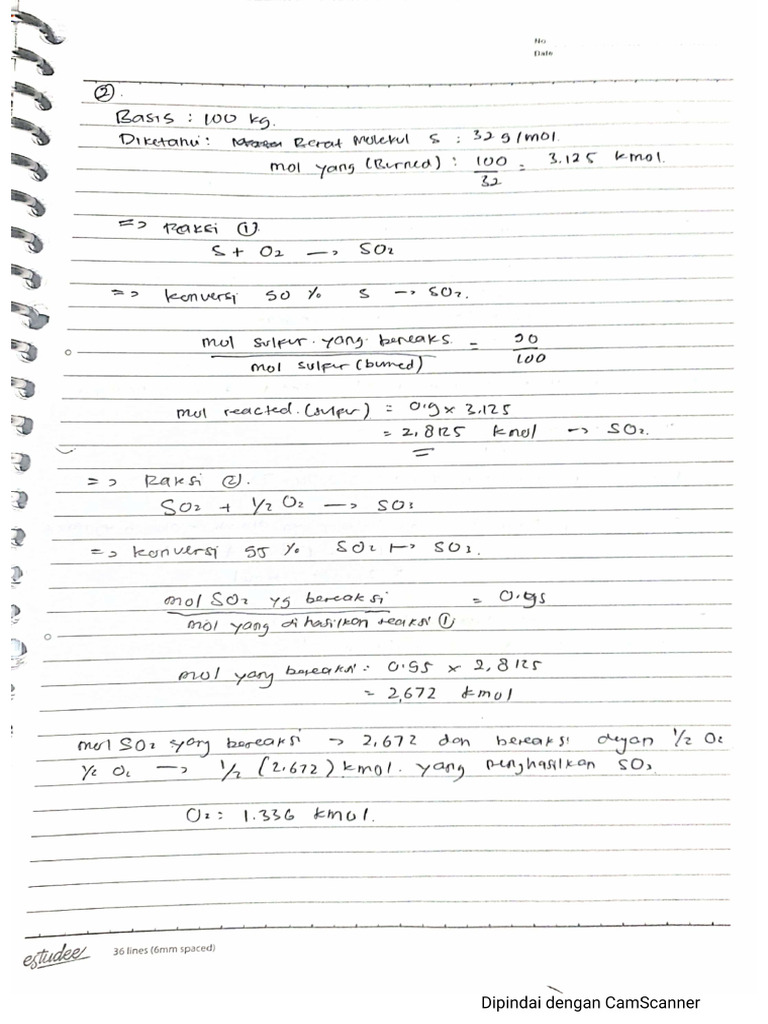 No
Date
②.
Basis : 100 kg.
Diketahui : Berat Molekul S : 32 g/mol.
mol yang (Burned) : 100/32 = 3.125 kmol.
=> Reaksi ①
S + O2 -> SO2
=> konversi 90 % S -> SO2.
mol sulfur yang bereaksi / mol sulfur (burned) = 90/100
mol reacted (sulfur) = 0.9 x 3.125
= 2,8125 kmol -> SO2.
=> Reaksi ②.
SO2 + 1/2 O2 -> SO3
=> konversi 95 % SO2 -> SO3.
mol SO2 yg bereaksi / mol yang dihasilkan reaksi ① = 0.95
mol yang bereaksi : 0.95 x 2,8125
= 2,672 kmol
mol SO2 yang bereaksi -> 2,672 dan bereaksi dengan 1/2 O2
1/2 O2 -> 1/2 (2.672) kmol. yang menghasilkan SO3
O2 : 1.336 kmol.
estudee 36 lines (6mm spaced)
Dipindai dengan CamScanner